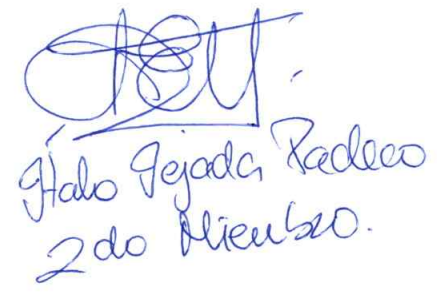 Italo Tejada Pacheco
2do Miembro.